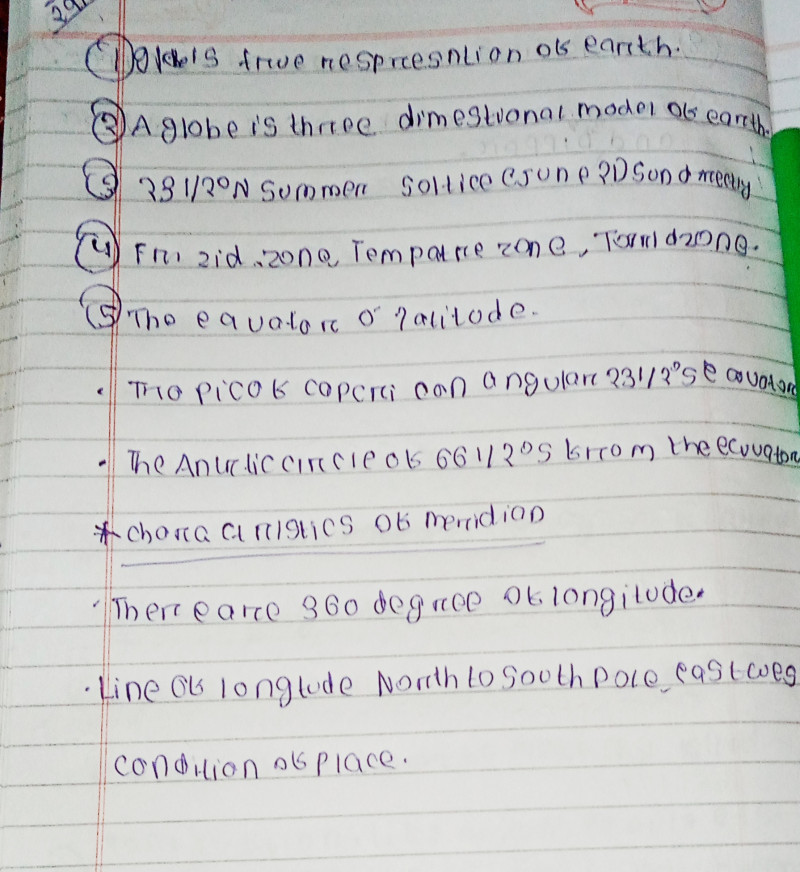 29
① is true respresntion of earth.
② A globe is three dimestional model of earth.
③ 231/2°N Summer Soltice (June 21) Sun directly
④ Fri zid. zone, Temparre zone, Torrid zone.
⑤ The equator 0° latitude.
• The picof caperci can angular 231/2°S equator
• The Anurtic circle of 661/2°S from the ecuuator
* characteristics of merridian
• There are 360 degree of longitude.
• Line of longtude North to South pole, east wes
condition of place.